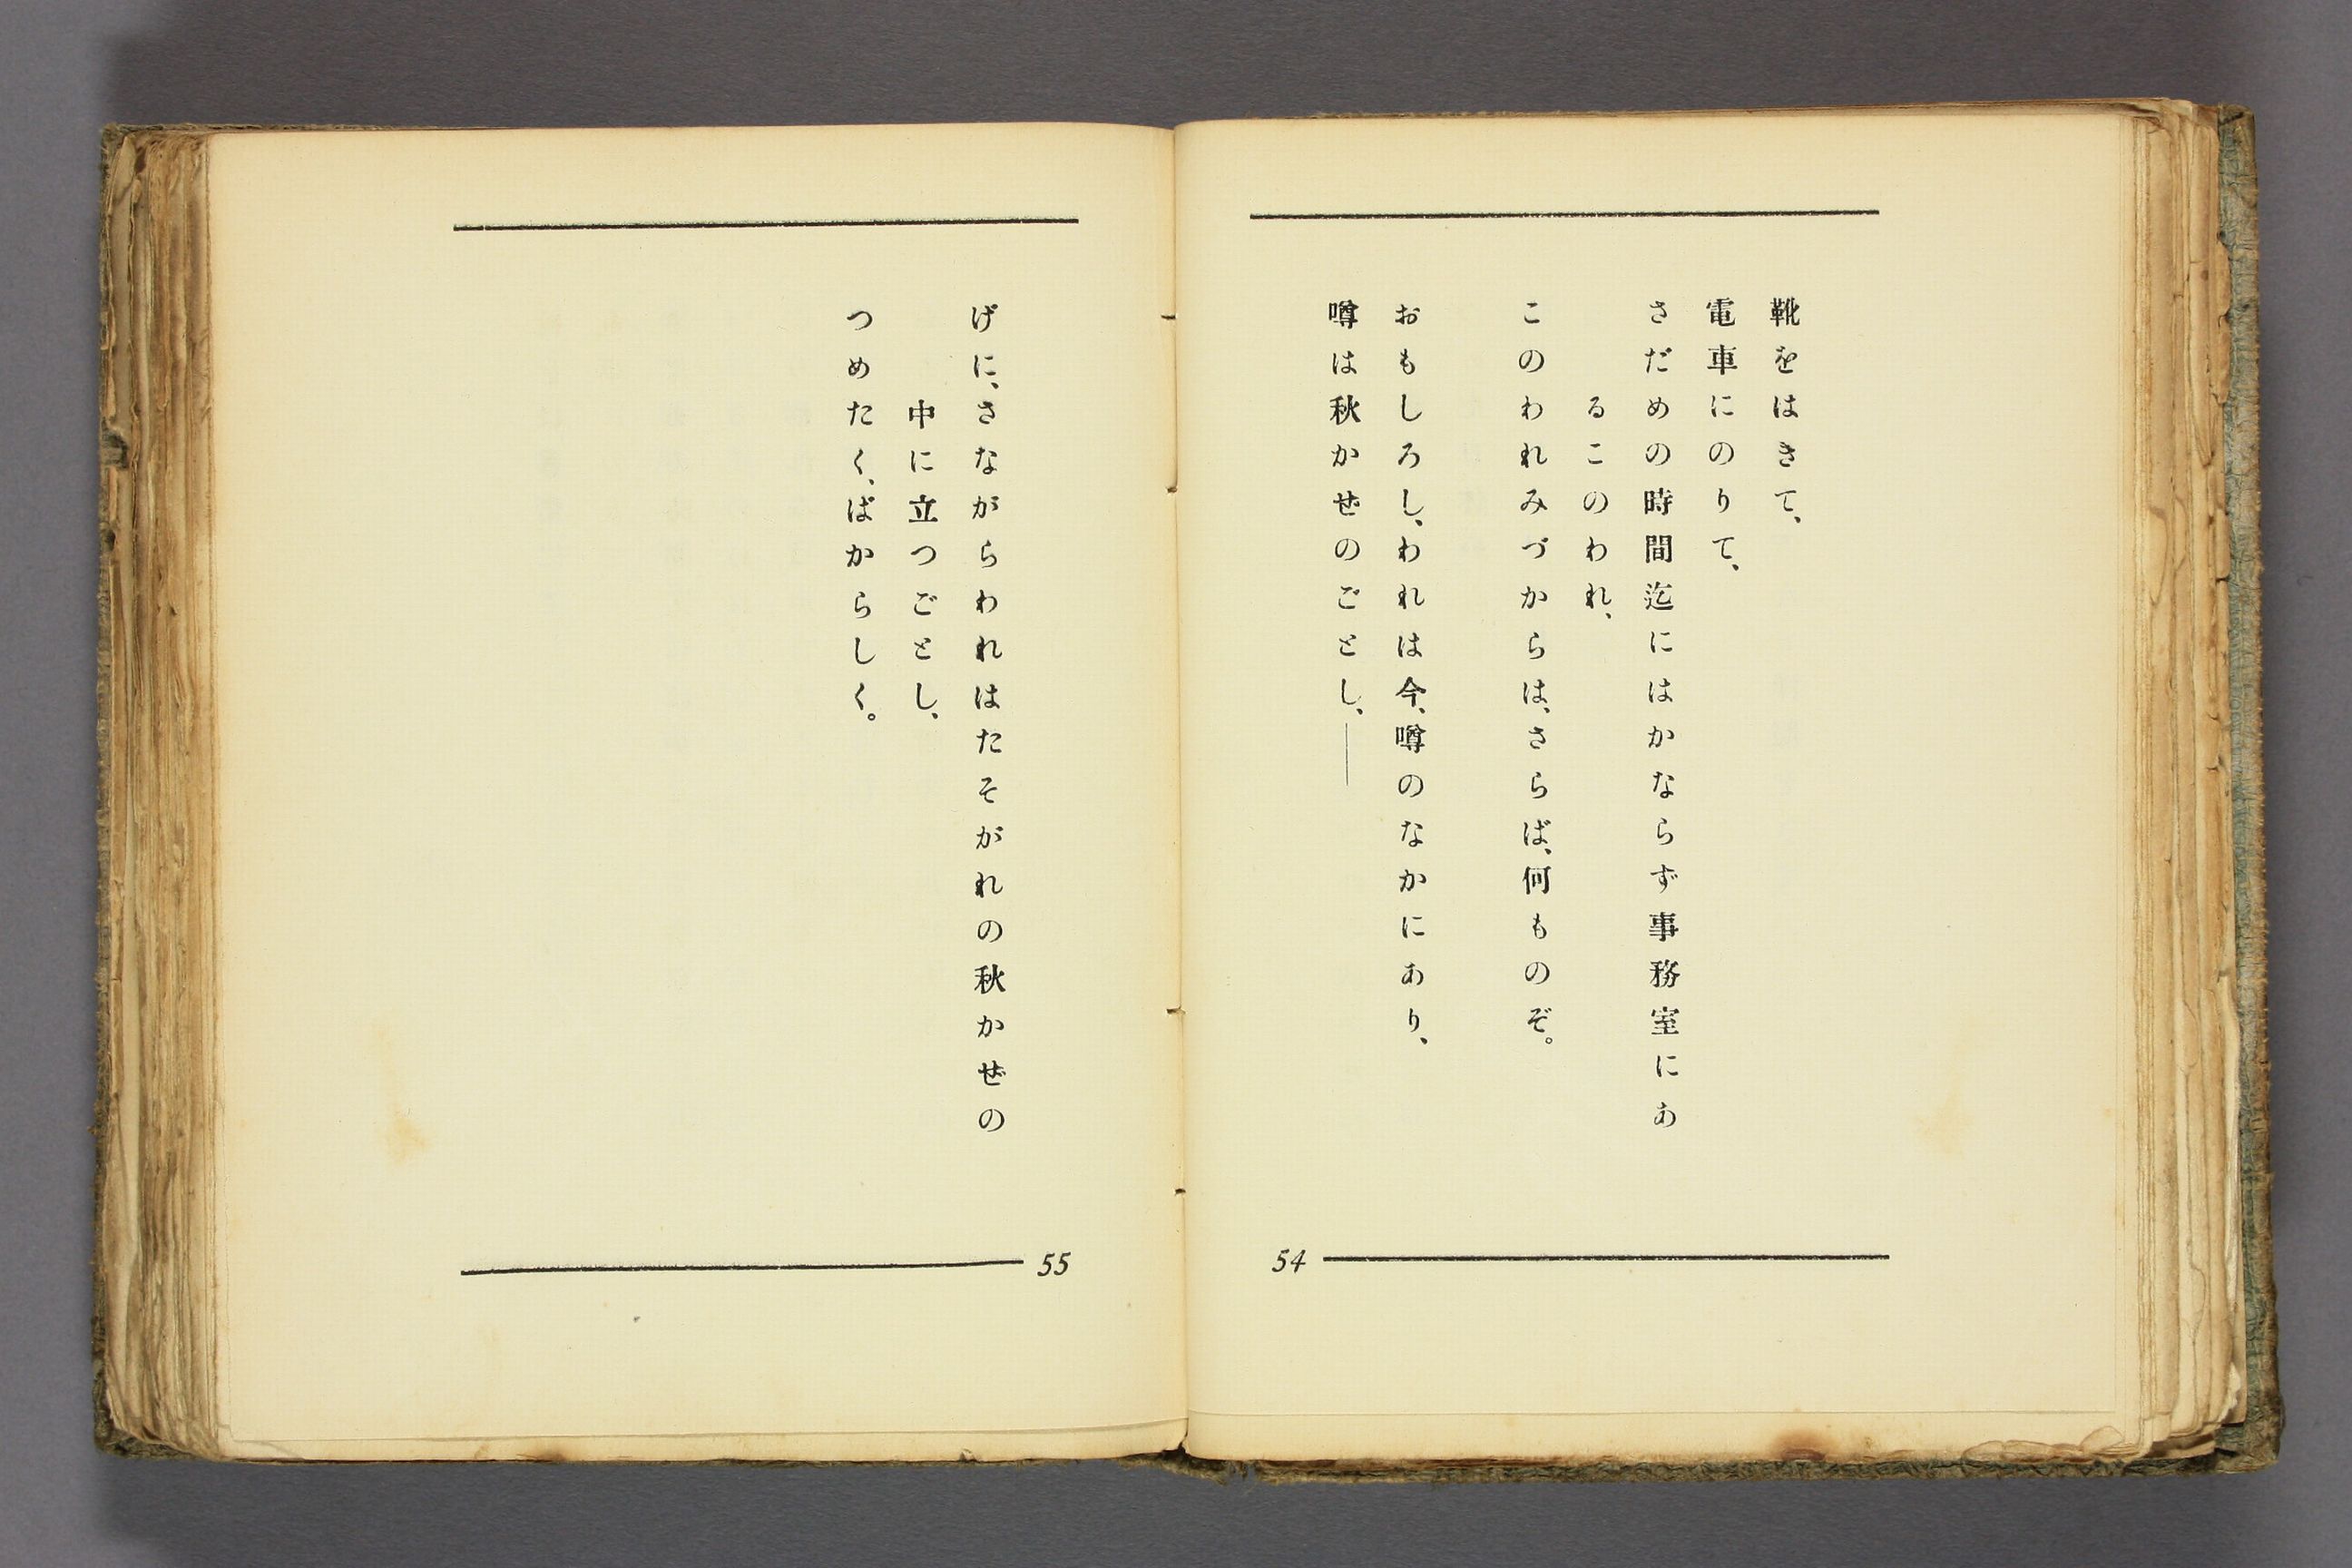 靴をはきて、
電車にのりて、
さだめの時間迄にはかならず事務室にあ
るこのわれ、
このわれみづからは、さらば、何ものぞ。
おもしろし、われは今、噂のなかにあり、
噂は秋かせのごとし、──
54
げに、さながらわれはたそがれの秋かぜの
中に立つごとし、
つめたく、ばからしく。
55